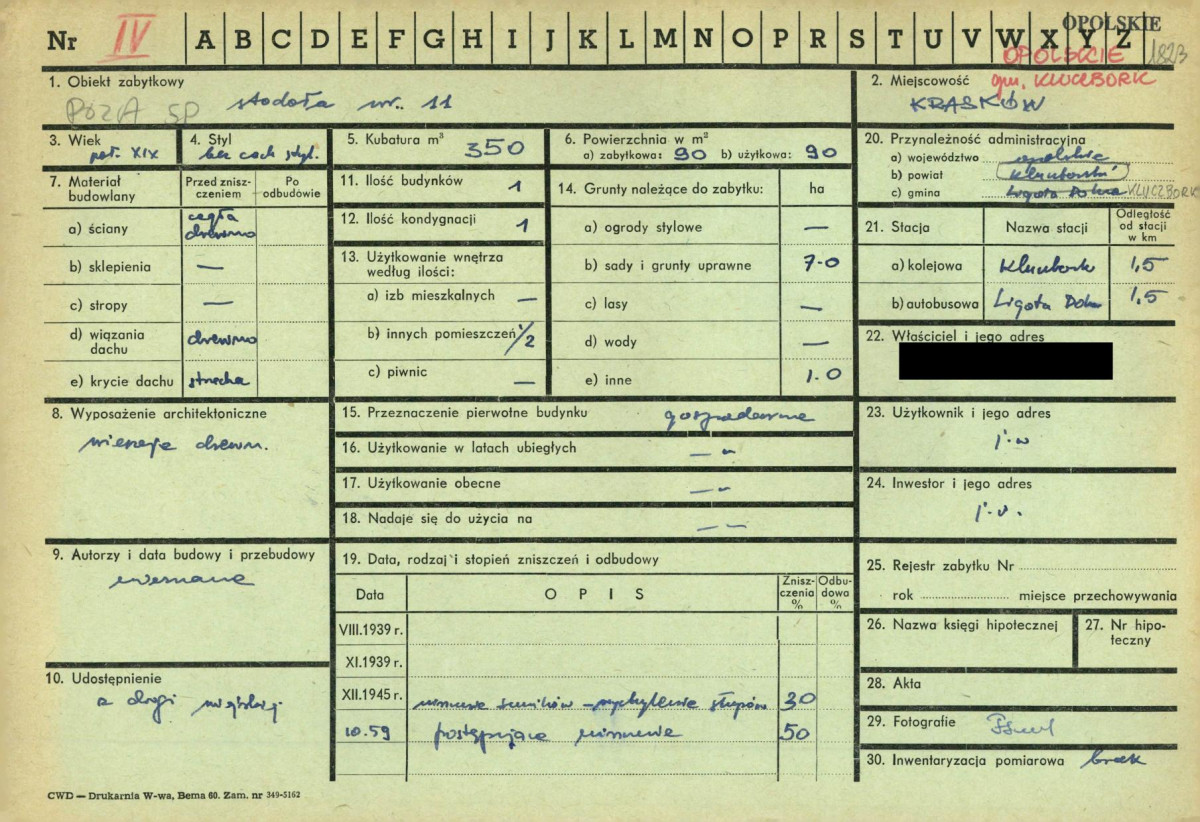 OPOLSKIE
Nr IV A B C D E F G H I J K L M N O P R S T U V W X Y Z
OPOLSKIE 1823
gm. KLUCZBORK
1. Obiekt zabytkowy
POZA SP stodoła nr. 11
2. Miejscowość
KRASKÓW
3. Wiek
poł. XIX
4. Styl
bez cech styl.
5. Kubatura m³ 350
6. Powierzchnia w m²
a) zabytkowa: 90 b) użytkowa: 90
20. Przynależność administracyjna
a) województwo opolskie
b) powiat kluczborski
c) gmina Ligota Dolna KLUCZBORK
7. Materiał budowlany
Przed zniszczeniem
Po odbudowie
a) ściany cegła drewno
b) sklepienia —
c) stropy —
d) wiązania dachu drewno
e) krycie dachu strzecha
11. Ilość budynków 1
12. Ilość kondygnacji 1
13. Użytkowanie wnętrza według ilości:
a) izb mieszkalnych —
b) innych pomieszczeń 1/2
c) piwnic —
14. Grunty należące do zabytku: ha
a) ogrody stylowe —
b) sady i grunty uprawne 7.0
c) lasy —
d) wody —
e) inne 1.0
21. Stacja
Nazwa stacji
Odległość od stacji w km
a) kolejowa Kluczbork 1,5
b) autobusowa Ligota Dolna 1,5
22. Właściciel i jego adres
8. Wyposażenie architektoniczne
wierzeje drewn.
15. Przeznaczenie pierwotne budynku gospodarcze
16. Użytkowanie w latach ubiegłych — „
17. Użytkowanie obecne — „
18. Nadaje się do użycia na — „
23. Użytkownik i jego adres
j.w
24. Inwestor i jego adres
j.w.
9. Autorzy i data budowy i przebudowy
nieznane
19. Data, rodzaj i stopień zniszczeń i odbudowy
Data
OPIS
Zniszczenia %
Odbudowa %
VIII.1939 r.
XI.1939 r.
XII.1945 r. – wychylenie słupów 30
10.59 postępujące niszczenie 50
25. Rejestr zabytku Nr
rok miejsce przechowywania
26. Nazwa księgi hipotecznej
27. Nr hipoteczny
10. Udostępnienie
z drogi wiejskiej
28. Akta
29. Fotografie
30. Inwentaryzacja pomiarowa brak
CWD — Drukarnia W-wa, Bema 60. Zam. nr 349-5162